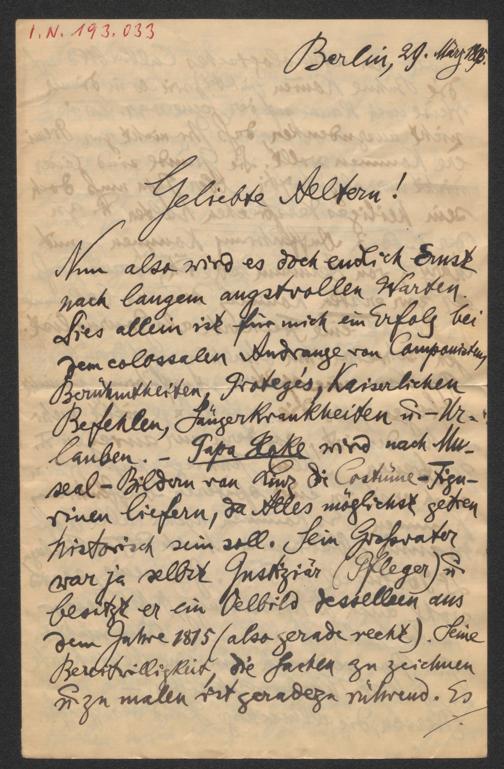 I.N. 193.033
Berlin, 29. März 1895.
Geliebte Aeltern!
Nun also wird es doch endlich Ernst
nach langem angstvollen Warten.
Dies allein ist für mich ein Erfolg bei
dem colossalen Andrange von Componisten,
Berühmtheiten, Protegés, Kaiserlichen
Befehlen, Sängerkrankheiten u – Ur-
lauben. – Papa Hake wird nach Mu-
seal-Bildern von Kunz die Costüme-Figu-
rinen liefern, da Alles möglichst getreu
historisch sein soll. Sein Großvater
war ja selbst Justiziär (Pfleger) u
besitzt er ein Oelbild desselben aus
dem Jahre 1815 (also gerade recht). Seine
Bereitwilligkeit, die Sachen zu zeichnen
u zu malen ist geradezu rührend. Es